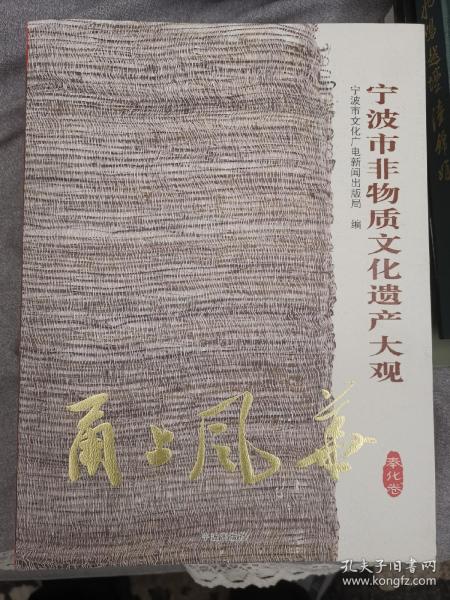 宁波市非物质文化遗产大观
宁波市文化广电新闻出版局 编
甬上风华
奉化卷
孔夫子旧书网
www.kongfz.com